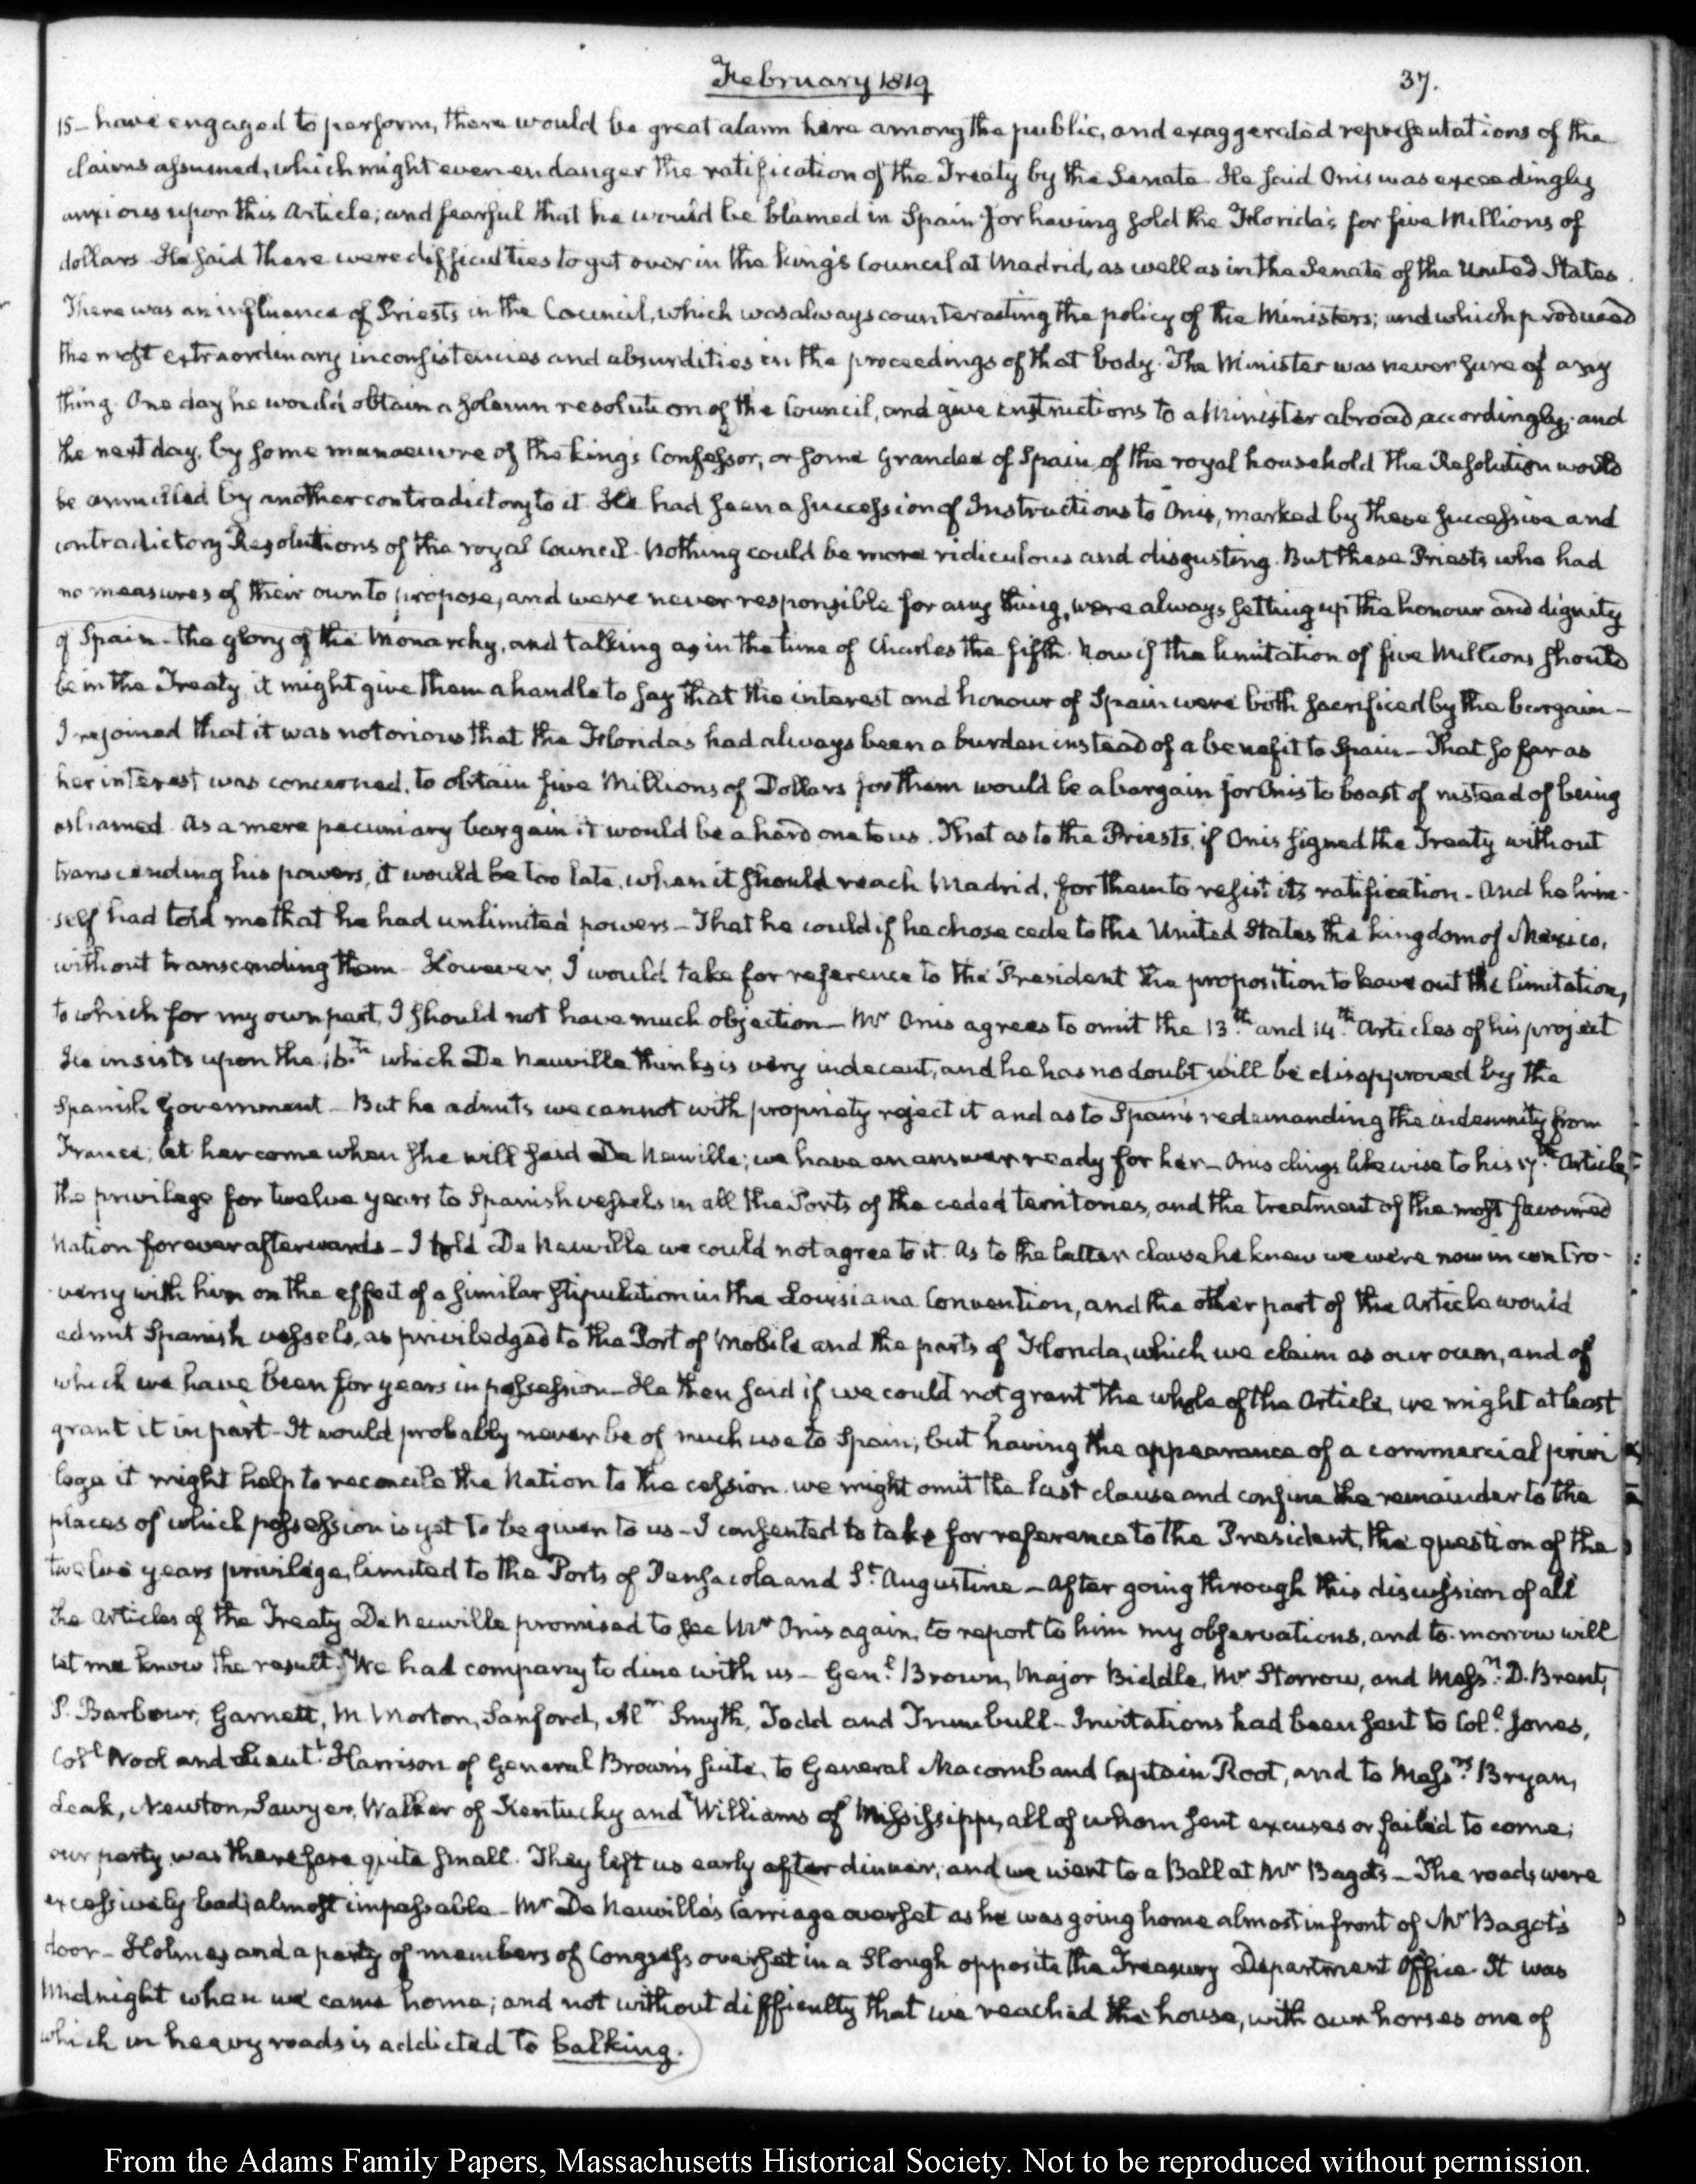 February 1819
37.
15– have engaged to perform, there would be great alarm here among the public, and exaggerated representations of the
claims assumed, which might even endanger the ratification of the Treaty by the Senate. He said Onis was exceedingly
anxious upon this Article; and fearful that he would be blamed in Spain for having sold the Florida's for five Millions of
dollars. He said there were difficulties to get over in the king's Council at Madrid, as well as in the Senate of the United States.
There was an influence of Priests in the Council, which was always counteracting the policy of the Ministers; and which produced
the most extraordinary inconsistencies and absurdities in the proceedings of that body. The Minister was never sure of any
thing. One day he would obtain a solemn resolution of the Council, and give instructions to a Minister abroad accordingly; and
the next day, by some manoeuvre of the king's Confessor, or some Grandee of Spain, of the royal household the Resolution would
be annulled by another contradictory to it. He had seen a succession of Instructions to Onis, marked by these successive and
contradictory Resolutions of the royal Council. Nothing could be more ridiculous and disgusting. But these Priests who had
no measures of their own to propose, and were never responsible for any thing, were always setting up the honour and dignity
of Spain – the glory of the Monarchy, and talking as in the time of Charles the fifth. Now if the limitation of five Millions should
be in the Treaty, it might give them a handle to say that the interest and honour of Spain were both sacrificed by the bargain –
I rejoined that it was notorious that the Florida's had always been a burden instead of a benefit to Spain – That so far as
her interest was concerned, to obtain five Millions of Dollars for them would be a bargain for Onis to boast of instead of being
ashamed. As a mere pecuniary bargain it would be a hard one to us. That as to the Priests, if Onis signed the Treaty without
transcending his powers, it would be too late, when it should reach Madrid, for them to resist its ratification – And he him-
self had told me that he had unlimited powers – That he could if he chose cede to the United States the kingdom of Mexico,
without transcending them – However, I would take for reference to the President the proposition to leave out the limitation,
to which for my own part, I should not have much objection – Mr Onis agrees to omit the 13th. and 14th. Articles of his project
He insists upon the 16th. which De Neuville thinks is very indecent, and he has no doubt will be disapproved by the
Spanish Government – But he admits we cannot with propriety reject it and as to Spain's redemanding the indemnity from
France; let her come when she will said De Neuville; we have an answer ready for her – Onis clings likewise to his 17th. Article,
the privilege for twelve years to Spanish vessels in all the Ports of the ceded territories, and the treatment of the most favoured
Nation forever afterwards – I told De Neuville we could not agree to it. As to the latter clause he knew we were now in contro-
versy with him on the effect of a similar stipulation in the Louisiana Convention, and the other part of the Article would
admit Spanish vessels, as priviledged to the Port of Mobile and the parts of Florida, which we claim as our own, and of
which we have been for years in possession – He then said if we could not grant the whole of the Article, we might at least
grant it in part – It would probably never be of much use to Spain; but having the appearance of a commercial privi
lege it might help to reconcile the Nation to the cession. we might omit the last clause and confine the remainder to the
places of which possession is yet to be given to us – I consented to take for reference to the President, the question of the
twelve years privilege, limited to the Ports of Pensacola and St. Augustine – After going through this discussion of all
the Articles of the Treaty De Neuville promised to see Mr Onis again, to report to him my observations, and to-morrow will
let me know the result. We had company to dine with us – Genl. Brown, Major Biddle, Mr Storrow, and Messrs. D. Brent,
P. Barbour, Garnett, M. Morton, Sanford, Alr. Smyth, Todd and Trumbull – Invitations had been sent to Coll. Jones,
Coll Wool and Lieutt. Harrison of General Brown's suite, to General Macomb and Captain Root, and to Messrs. Bryan,
Leak, Newton, Sawyer, Walker of Kentucky and Williams of Mississippi, all of whom sent excuses or failed to come;
our party was therefore quite small. They left us early after dinner, and we went to a Ball at Mr Bagot's – The roads were
excessively bad; almost impassable – Mr De Neuville's Carriage overset as he was going home almost in front of Mr Bagot's
door – Holmes and a party of members of Congress overset in a Slough opposite the Treasury Department Office. It was
Midnight when we came home; and not without difficulty that we reached the house, with our horses one of
which in heavy roads is addicted to balking.
From the Adams Family Papers, Massachusetts Historical Society. Not to be reproduced without permission.